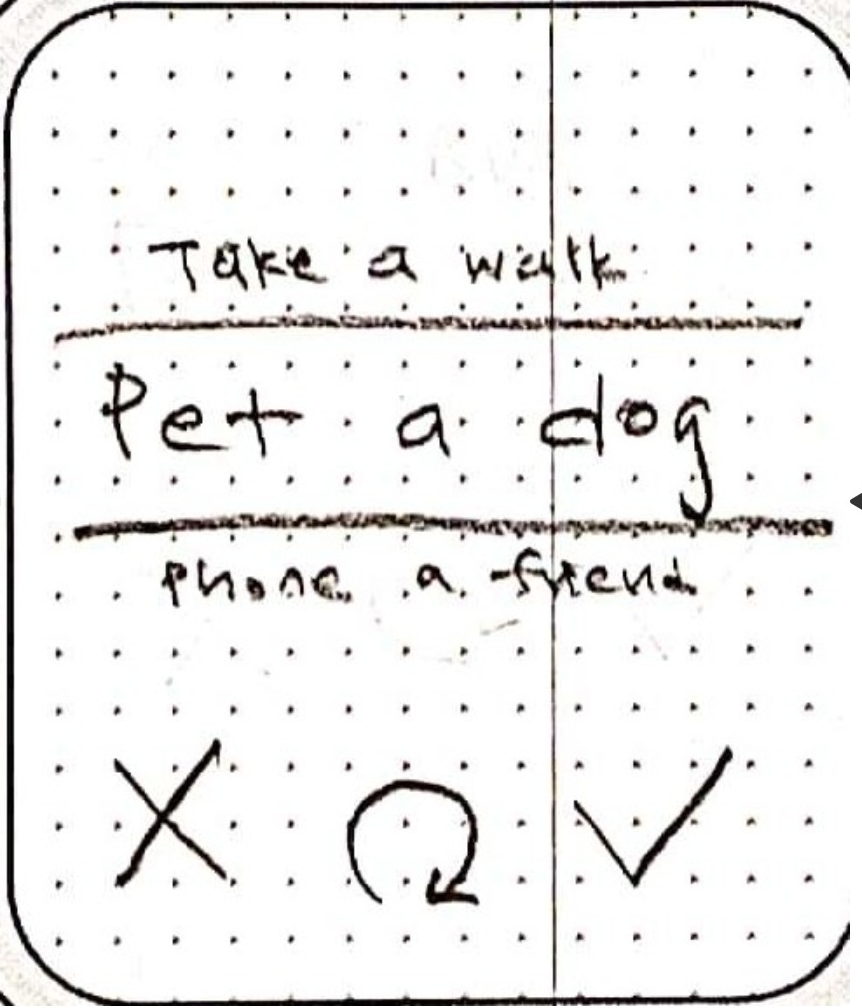 Take a walk
Pet a dog
Phone a friend